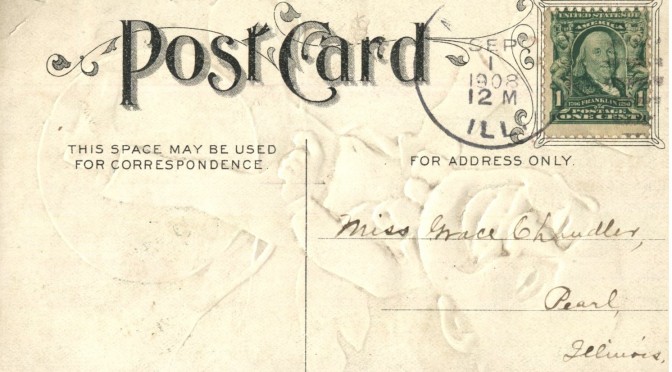 Post Card
SEP
1
1908
12 M
ILL
UNITED STATES OF
AMERICA
1 1706 FRANKLIN 1790 1
POSTAGE
ONE CENT
THIS SPACE MAY BE USED
FOR CORRESPONDENCE.
FOR ADDRESS ONLY.
Miss Grace Chandler,
Pearl,
Illinois.